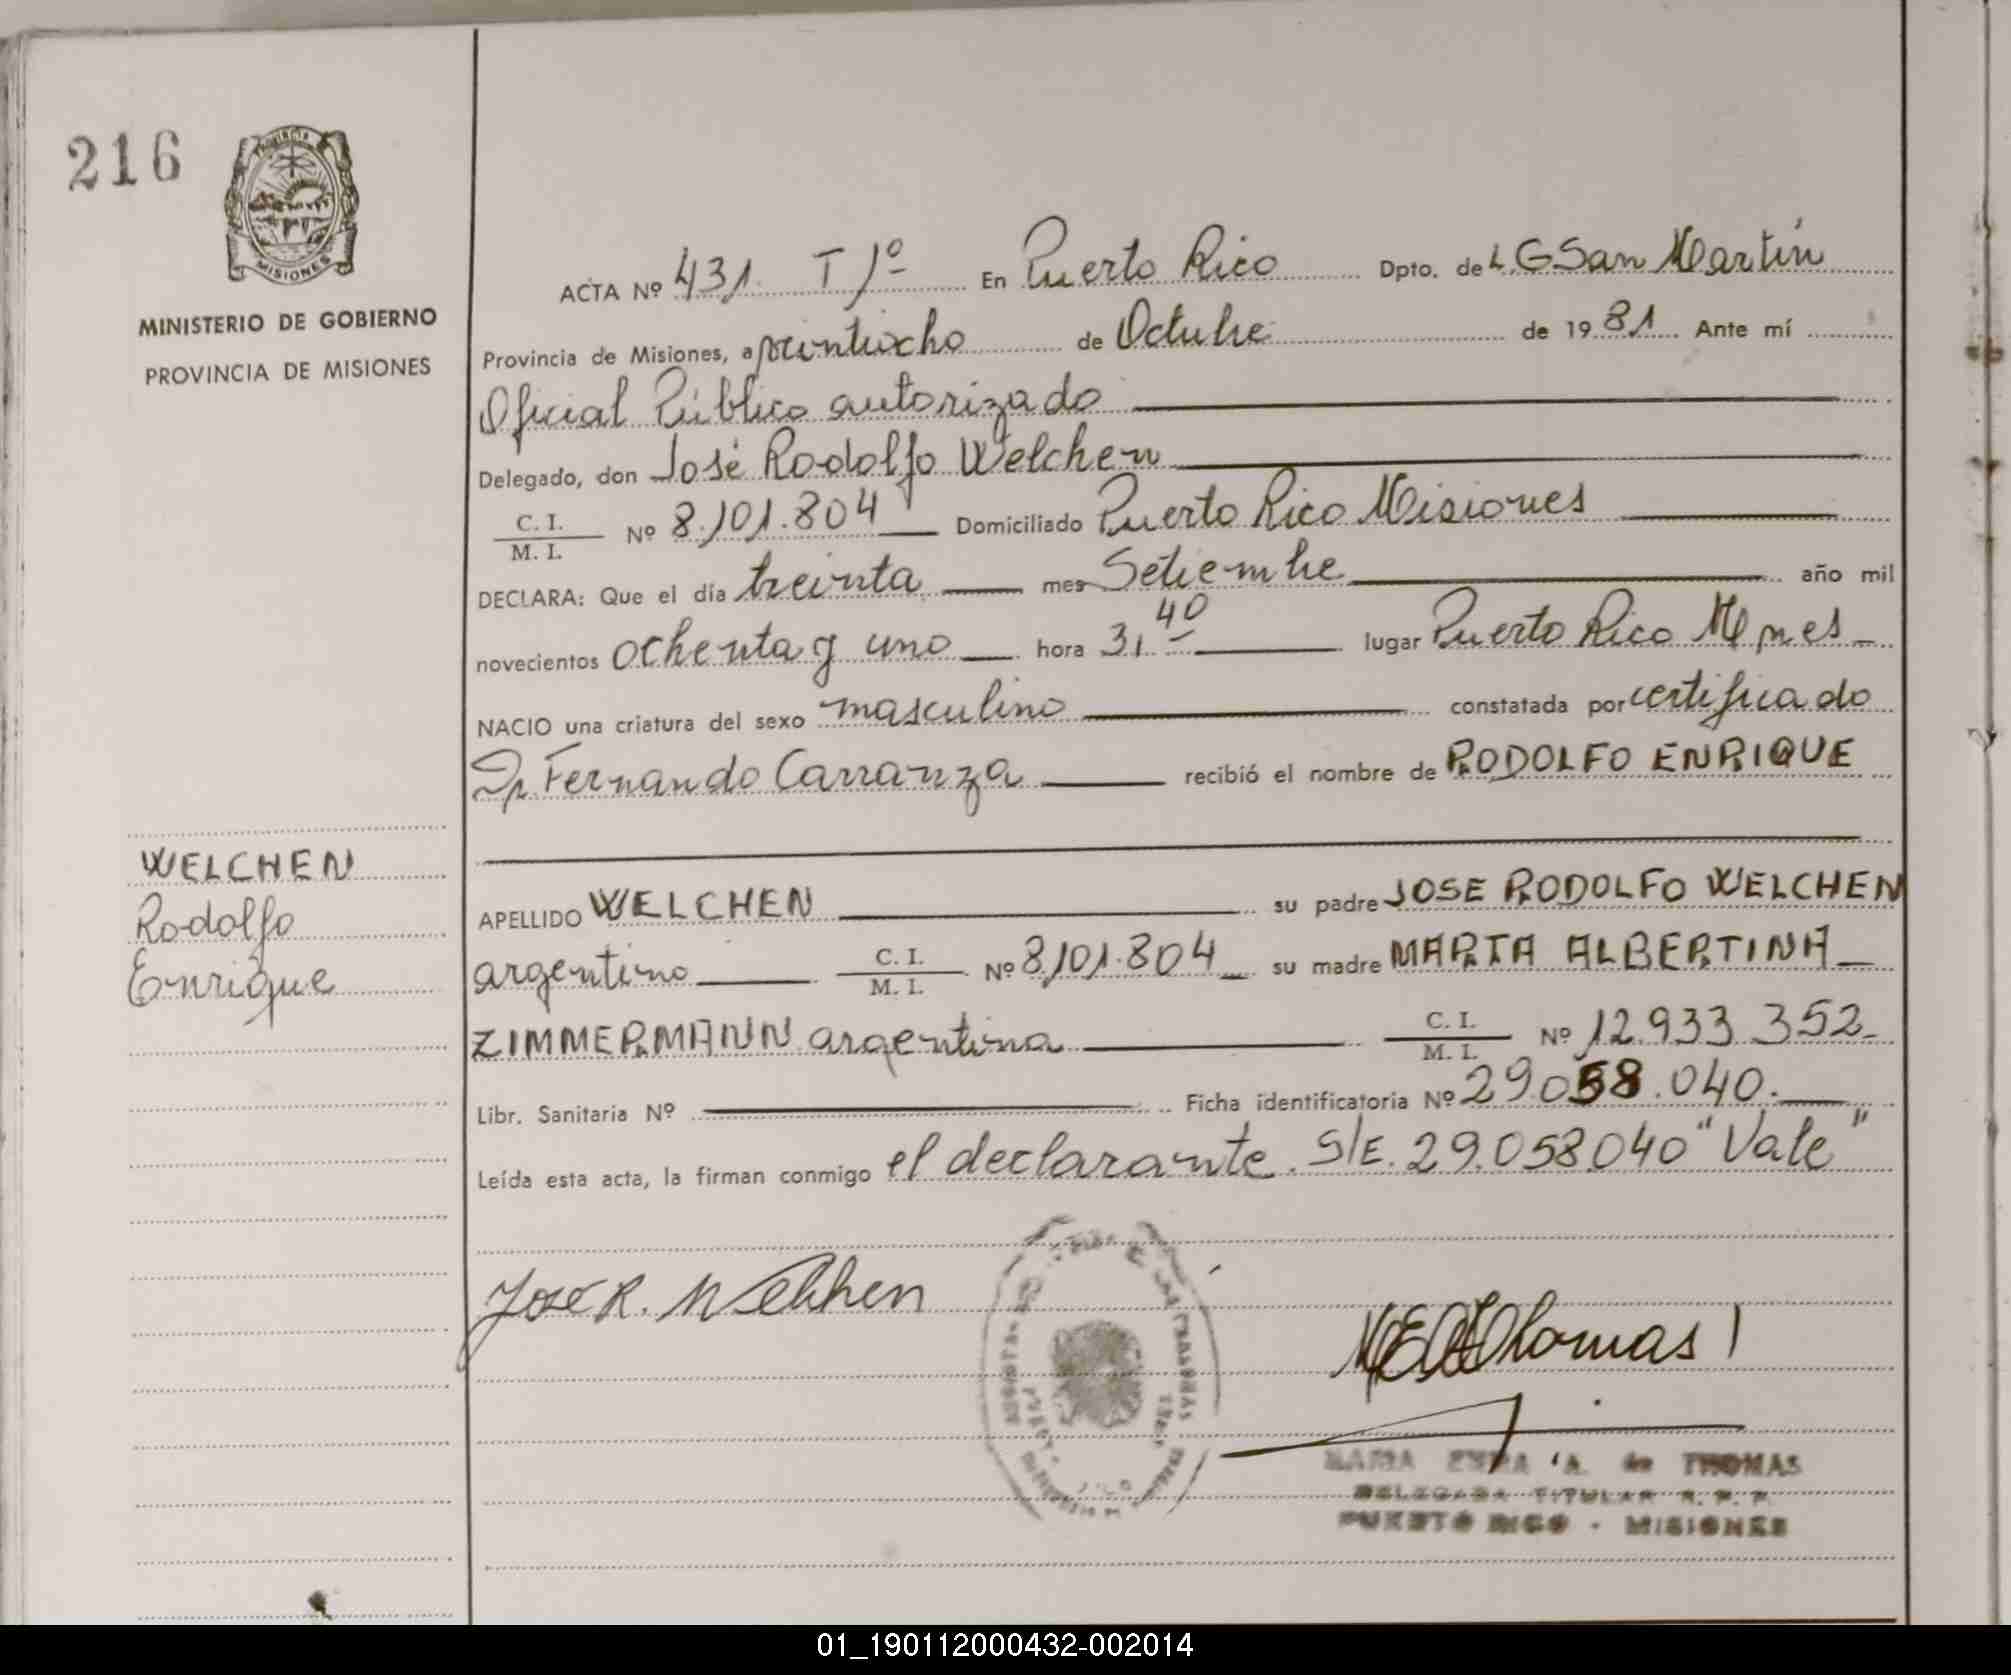 216
PROVINCIA
MISIONES
MINISTERIO DE GOBIERNO
PROVINCIA DE MISIONES
ACTA Nº 431. T 1º En Puerto Rico Dpto. de L.G.San Martín
Provincia de Misiones, a veintiocho de Octubre de 1981 Ante mí
Oficial Público autorizado
Delegado, don José Rodolfo Welchen
C. I.
M. I. Nº 8.101.804 Domiciliado Puerto Rico Misiones
DECLARA: Que el día treinta mes Setiembre año mil
novecientos ochenta y uno hora 3,40 lugar Puerto Rico Mnes
NACIO una criatura del sexo masculino constatada por certificado
Dr. Fernando Carranza recibió el nombre de RODOLFO ENRIQUE
WELCHEN
Rodolfo
Enrique
APELLIDO WELCHEN su padre JOSE RODOLFO WELCHEN
argentino C. I.
M. I. Nº 8.101.804 su madre MARTA ALBERTINA
ZIMMERMANN argentina C. I.
M. I. Nº 12.933.352
Libr. Sanitaria Nº Ficha identificatoria Nº 29.058.040.
Leída esta acta, la firman conmigo el declarante. S/E. 29.058.040 "Vale"
José R. Welchen
Thomas
MARIA A. de THOMAS
DELEGADA TITULAR R. P. P.
PUERTO RICO - MISIONES
01_190112000432-002014